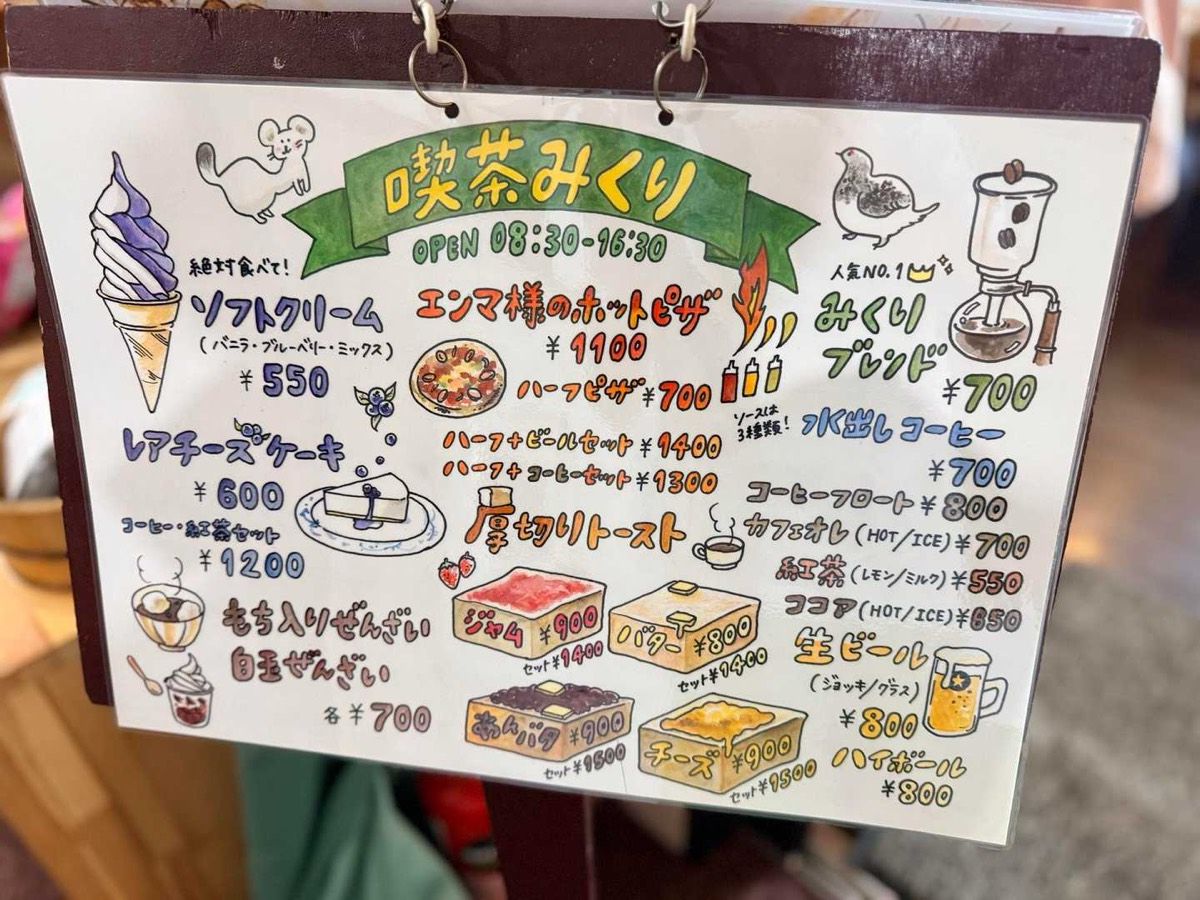 喫茶みくり
OPEN 08:30-16:30
絶対食べて!
ソフトクリーム
(バニラ・ブルーベリー・ミックス)
¥550
レアチーズケーキ
¥600
コーヒー・紅茶セット
¥1200
もち入りぜんざい
白玉ぜんざい
各¥700
エンマ様のホットピザ
¥1100
ハーフピザ ¥700
ソースは
3種類!
ハーフ+ビールセット ¥1400
ハーフ+コーヒーセット ¥1300
厚切りトースト
ジャム ¥900
セット¥1400
バター ¥800
セット¥1400
あんバタ ¥900
セット¥1500
チーズ ¥900
セット¥1500
人気NO.1
みくり
ブレンド
¥700
水出しコーヒー
¥700
コーヒーフロート ¥800
カフェオレ(HOT/ICE)¥700
紅茶(レモン/ミルク)¥550
ココア(HOT/ICE)¥650
生ビール
(ジョッキ/グラス)
¥800
ハイボール
¥800